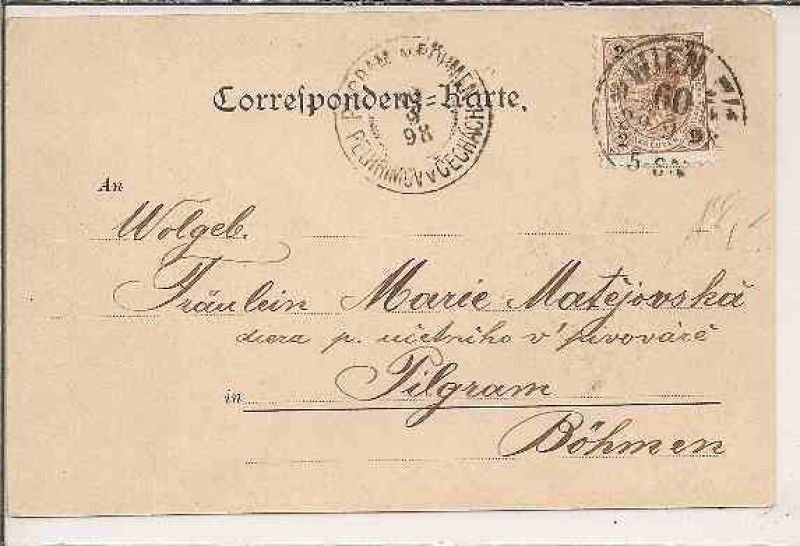 Correspondenz-Karte.
PILGRAM IN BÖHMEN
98
PELHŘIMOV V ČECHÁCH
WIEN
60
2
2
An
Wolgeb.
Fräulein Marie Matějovská
dcera p. účetního v pivováře
in Pilgram
Böhmen